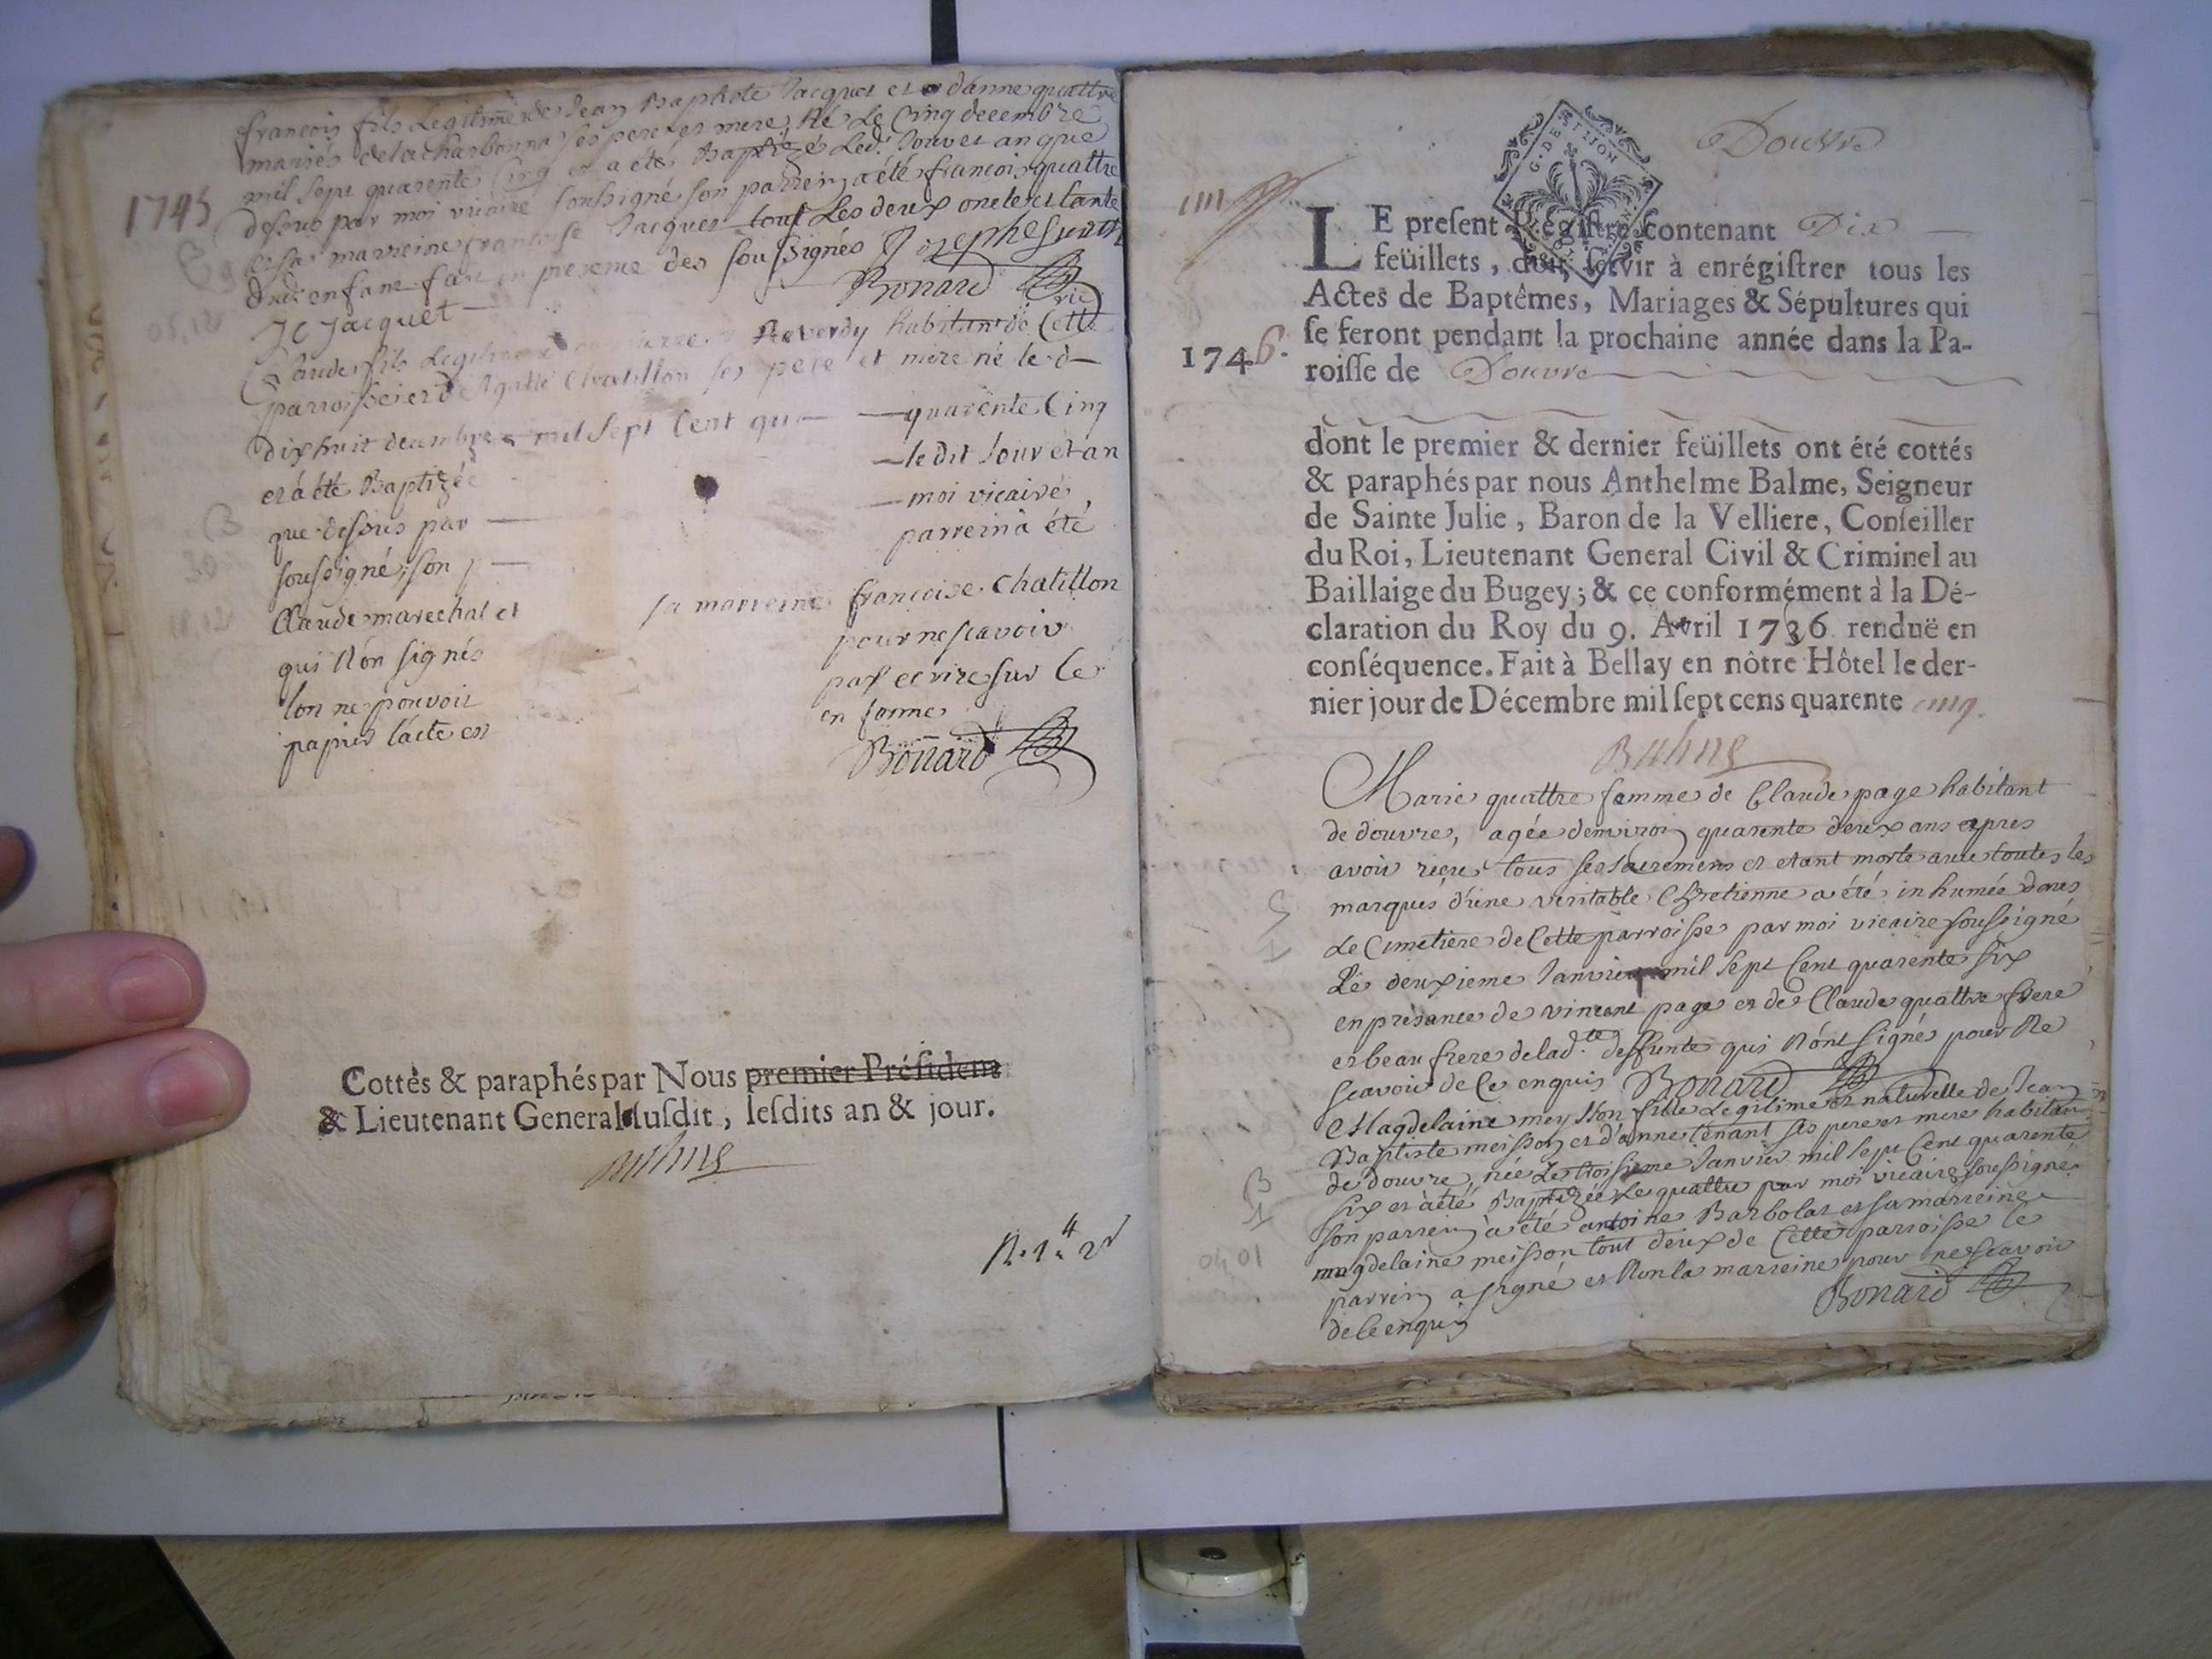 1745
francois fils Legitime de Jean Baptiste Jacquet et danne quattre
mariés de la charbonna ses pere et mere, Né Le Cinq decembre
mil sept quarente Cinq et a été Baptizé Led. Jour et an que
dessus par moi vicaire soussigné son parrein a été francois quattre
et sa marreine francoise Jacquet tous Les deux oncle et tante
dud. enfant fait en presence des soussignés
JC Jacquet Bonard vic
Claude fils Legitime Reverdy habitant de Cette
parroisse et d'Agathe Chatillon ses pere et mere né le d
dixhuit decembre mil sept Cent qua — quarente Cinq
et a été Baptizé — le dit Jour et an
que dessus par — moi vicaire
soussigné, son p — parrein a été
Claude marechal et sa marreine francoise Chatillon
qui Non signés pour ne scavoir
lon ne pouvoit pas ecrire sur le
papier l'acte est en forme
Bonard
Cottés & paraphés par Nous premier Président
& Lieutenant General susdit, lesdits an & jour.
Douvre
LE present Régistre contenant Dix
feüillets, doit servir à enrégistrer tous les
Actes de Baptêmes, Mariages & Sépultures qui
se feront pendant la prochaine année dans la Pa-
1746.
roisse de Douvre
dont le premier & dernier feüillets ont été cottés
& paraphés par nous Anthelme Balme, Seigneur
de Sainte Julie, Baron de la Velliere, Conseiller
du Roi, Lieutenant General Civil & Criminel au
Baillaige du Bugey; & ce conformément à la Dé-
claration du Roy du 9. Avril 1736 renduë en
conséquence. Fait à Bellay en nôtre Hôtel le der-
nier jour de Décembre mil sept cens quarente cinq.
Marie quattre femme de Claude page habitant
de douvre, agée denviron quarente deux ans apres
avoir reçu tous ses sacremens et etant morte avec toutes les
marques d'une veritable Chretienne a été inhumée dans
Le Cimetiere de Cette parroisse par moi vicaire soussigné
Le deuxieme Janvier mil sept Cent quarente six
en presance de vincent page et de Claude quattre frere
et beau frere de lad.te deffunte qui N'ont signés pour Ne
scavoir de Ce enquis Bonard
Magdelaine meysson fille Legitime et naturelle de Jean
Baptiste meisson et d'anne tenant ses pere et mere habitan
de douvre, née Le troisieme Janvier mil sept Cent quarente
six et a été Baptizée Le quattre par moi vicaire soussigné
son parrein a été antoine Barbolat et sa marreine
magdelaine meisson tout deux de Cette parroisse le
parrein a signé et Non la marreine pour ne scavoir
de Ce enquis Bonard